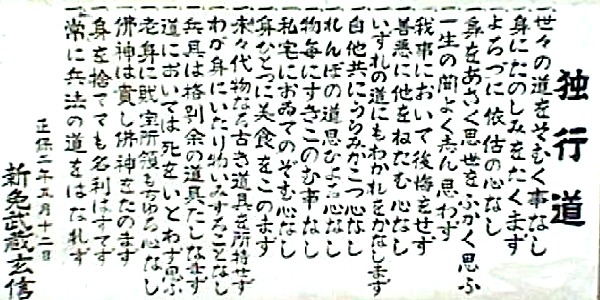 独行道
一 世々の道をそむく事なし
一 身にたのしみをたくまず
一 よろづに依怙の心なし
一 身をあさく思世をふかく思ふ
一 一生の間よく心思わず
一 我事において後悔をせず
一 善悪に他をねたむ心なし
一 いずれの道にもわかれをかなします
一 自他共にうらみかこつ心なし
一 れんぼの道思ひよる心なし
一 物毎にすきこのむ事なし
一 私宅におゐてのぞむ心なし
一 身ひとつに美食をこのまず
一 末々代物なる古き道具を所持せず
一 わが身にいたり物いみすることなし
一 兵具は格別余の道具たしなまず
一 道においては死をいとわず思ふ
一 老身に財宝所領もちゆる心なし
一 佛神は貴し佛神をたのまず
一 身を捨てても名利はすてず
一 常に兵法の道をはなれず
正保二年五月十二日
新免武蔵玄信